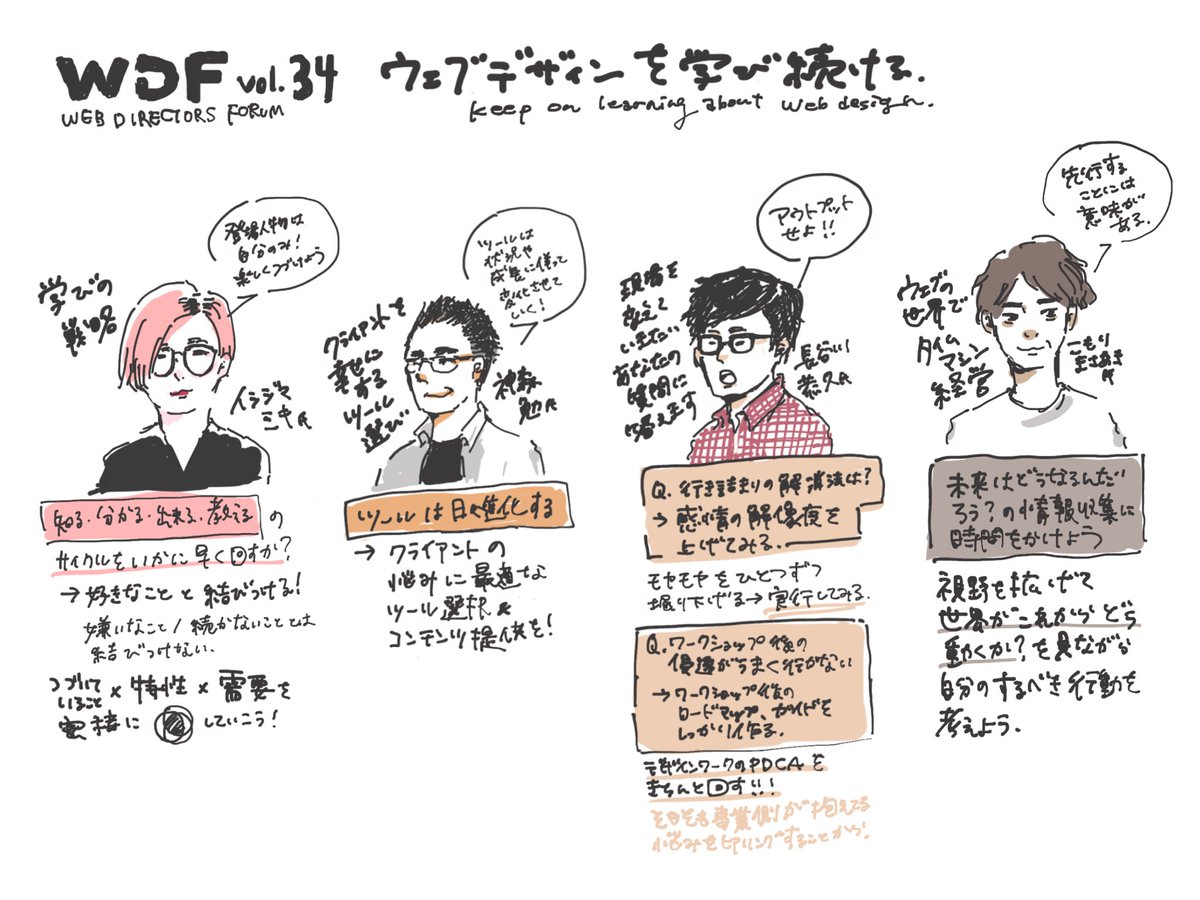 WDF vol.34
WEB DIRECTORS FORUM
ウェブデザインを学び続ける.
keep on learning about web design.
学びの
戦略
登場人物は
自分のみ!
楽しくつづけよう
イシジマ
ミキ氏
知る・分かる・出来る・教える の
サイクルをいかに早く回すか?
→好きなことと結びつける!
嫌いなこと/続かないこととは
結びつけない.
つづいて
いること×特性×需要を
密接に していこう!
クライアントを
幸せに
する
ツール
選び
ツールは
状況や
成長に従って
変化させて
いく!
神森
勉氏
ツールは日々進化する
→クライアントの
悩みに最適な
ツール選択&
コンテンツ提供を!
現場を
変えて
いきたい
あなたの
質問に
答えます
アウトプット
せよ!!
長谷川
恭久氏
Q.行き詰まりの解消法は?
→感情の解像度を
上げてみる.
モヤモヤをひとつずつ
掘り下げる→実行してみる.
Q.ワークショップ後の
浸透がうまく行かない
→ワークショップ後の
ロードマップ、ガイドを
しっかり作る.
デザインワークのPDCAを
きちんと回す!!!
そもそも事業側が抱えてる
悩みをヒアリングすることから!
ウェブの
世界で
タイム
マシン
経営
先行する
ことには
意味が
ある.
こもり
まさあき
氏
未来はどうなるんだ
ろう?の情報収集に
時間をかけよう
視野を拡げて
世界がこれからどう
動くか?を見ながら
自分のするべき行動を
考えよう.